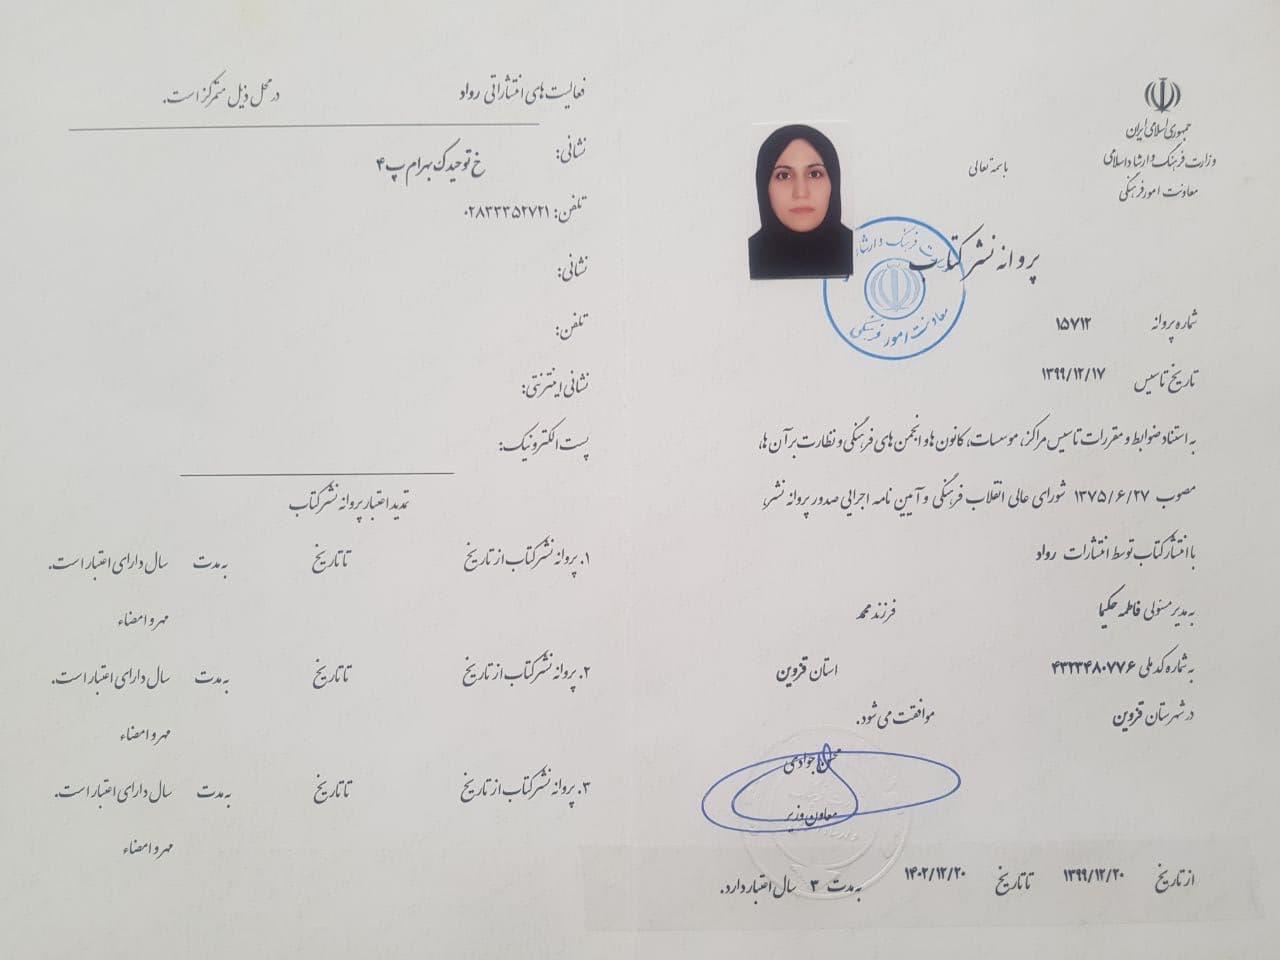 جمهوری اسلامی ایران
وزارت فرهنگ و ارشاد اسلامی
معاونت امور فرهنگی
باسمه تعالی
پروانه نشر کتاب
معاونت امور فرهنگی
شماره پروانه ۱۵۷۱۲
تاریخ تاسیس ۱۳۹۹/۱۲/۱۷
به استناد ضوابط و مقررات تاسیس مراکز، موسسات، کانون ها و انجمن های فرهنگی و نظارت بر آن ها،
مصوب ۱۳۷۵/۶/۲۷ شورای عالی انقلاب فرهنگی و آیین نامه اجرایی صدور پروانه نشر،
با انتشار کتاب توسط انتشارات رواد
به مدیر مسئولی فاطمه حکیما فرزند محمد
به شماره کد ملی ۴۳۲۳۴۸۰۷۷۶ استان قزوین
در شهرستان قزوین موافقت می شود.
محسن جوادی
معاون وزیر
از تاریخ ۱۳۹۹/۱۲/۲۰ تا تاریخ ۱۴۰۲/۱۲/۲۰ به مدت ۳ سال اعتبار دارد.
فعالیت های انتشاراتی رواد در محل ذیل متمرکز است.
نشانی: خ توحید ک بهرام پ ۴
تلفن: ۰۲۸۳۳۳۵۲۷۲۱
نشانی:
تلفن:
نشانی اینترنتی:
پست الکترونیک:
تمدید اعتبار پروانه نشر کتاب
۱. پروانه نشر کتاب از تاریخ تا تاریخ به مدت سال دارای اعتبار است.
مهر و امضاء
۲. پروانه نشر کتاب از تاریخ تا تاریخ به مدت سال دارای اعتبار است.
مهر و امضاء
۳. پروانه نشر کتاب از تاریخ تا تاریخ به مدت سال دارای اعتبار است.
مهر و امضاء